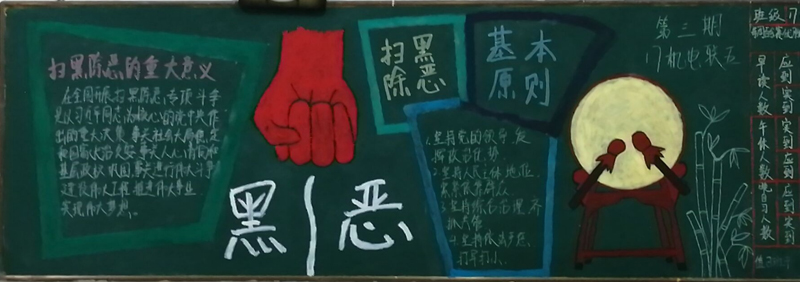 扫黑除恶的重大意义
在全国开展扫黑除恶专项斗争
是以习近平同志为核心的党中央作
出的重大决策 事关社会大局稳定
和国家长治久安 事关人心向背和
基层政权巩固 事关进行伟大斗争
建设伟大工程 推进伟大事业
实现伟大梦想。
黑恶
扫黑
除恶
基本
原则
1.坚持党的领导 发
挥政治优势。
2.坚持人民主体地位
紧紧依靠群众
3.坚持综合治理 齐
抓共管
4.
打早打小。
第三期
17机电
班级17
早读人数
应到
实到
午休人数
应到
实到
晚自习人数
应到
实到